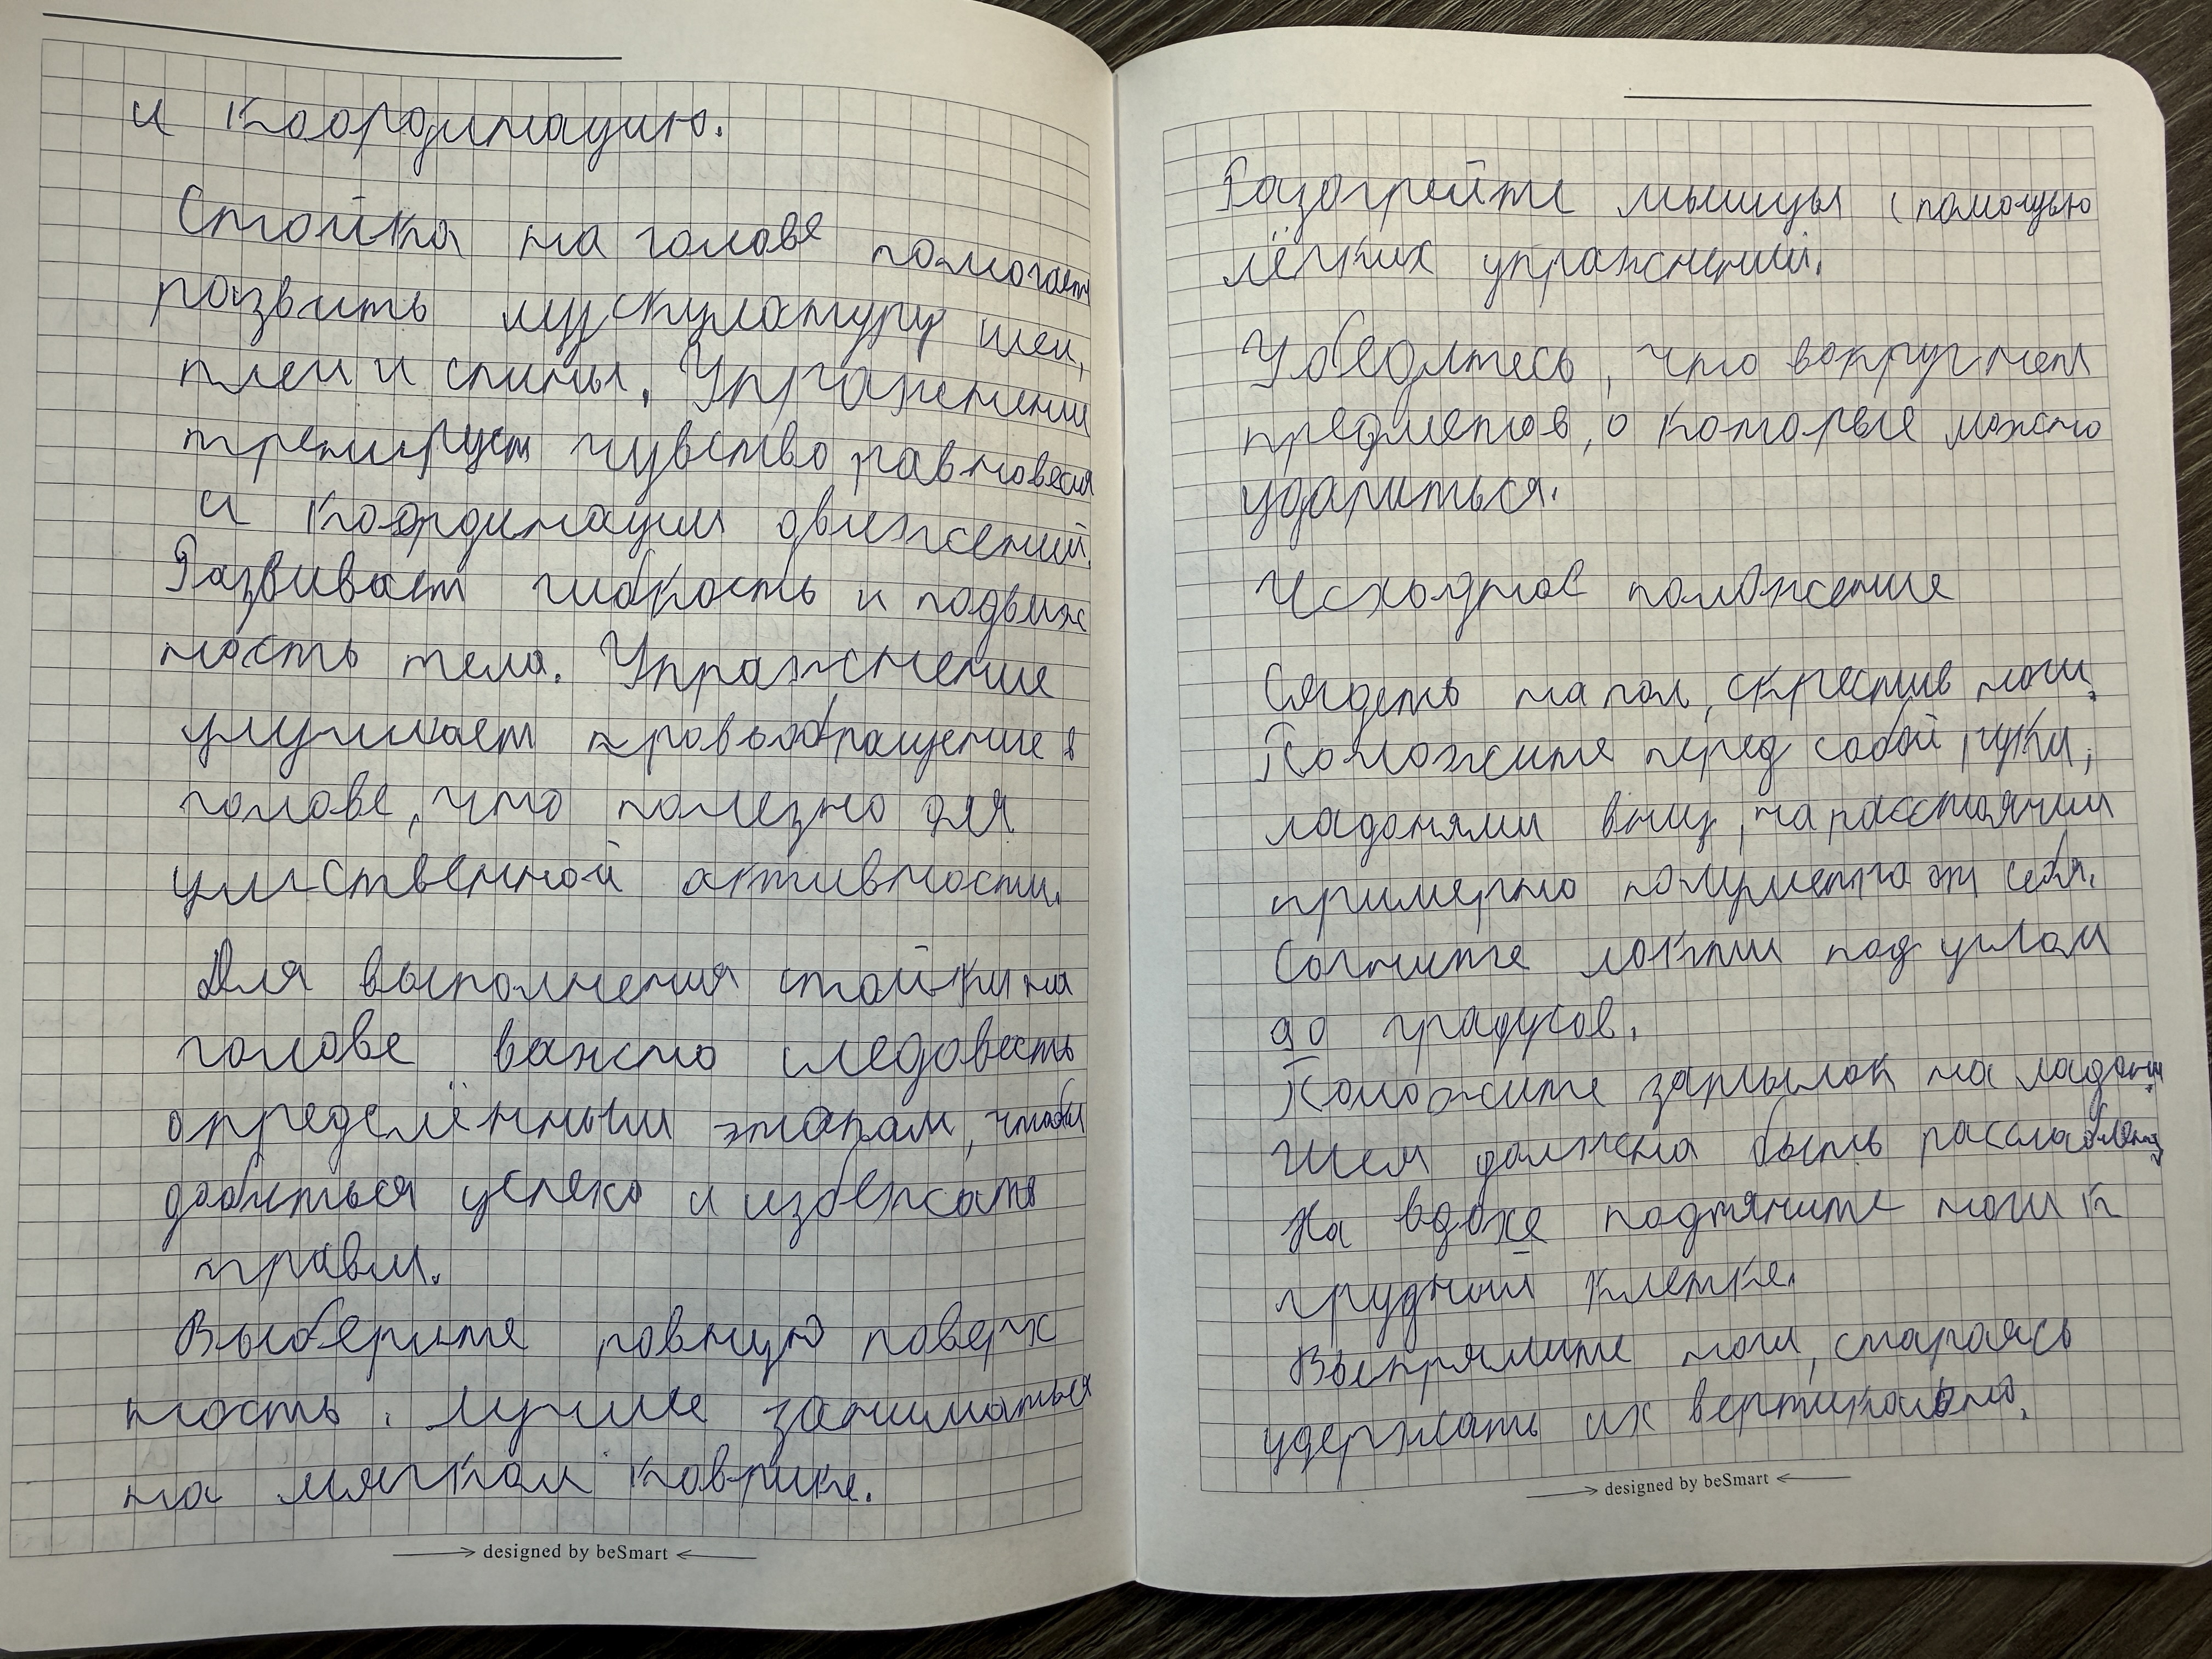 и координацию.
Стойка на голове помогает
развить мускулатуру шеи,
плеч и спины. Упражнение
тренирует чувство равновесия
и координации движений.
Развивает гибкость и подвиж
ность тела. Упражнение
улучшает кровообращение в
голове, что полезно для
умственной активности.
Для выполнения стойки на
голове важно следовать
определённым этапам, чтобы
добиться успеха и избежать
травм.
Выберите ровную поверх
ность. Лучше заниматься
на мягком коврике.
designed by beSmart
Разогрейте мышцы с помощью
лёгких упражнений.
Убедитесь, что вокруг нет
предметов, о которые можно
удариться.
Исходное положение
Сядеть на пол, скрестив ноги.
Положите перед собой руки,
ладонями вниз, на расстоянии
примерно полуметра от себя.
Согните локти под углом
90 градусов.
Положите затылок на ладони
Шея должна быть расслаблена
На вдохе подтяните ноги к
грудной клетке.
Выпрямите ноги, стараясь
удержать их вертикально.
designed by beSmart